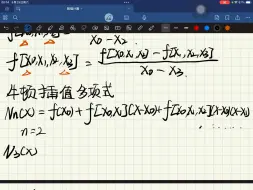 f[x₀,x₁,x₂,x₃] = (f[x₀,x₁,x₂] - f[x₁,x₂,x₃]) / (x₀-x₃)
牛顿插值多项式
Nn(x) = f(x₀) + f[x₀,x₁](x-x₀) + f[x₀,x₁,x₂](x-x₀)(x-x₁)
n=2 ......
N₃(x)